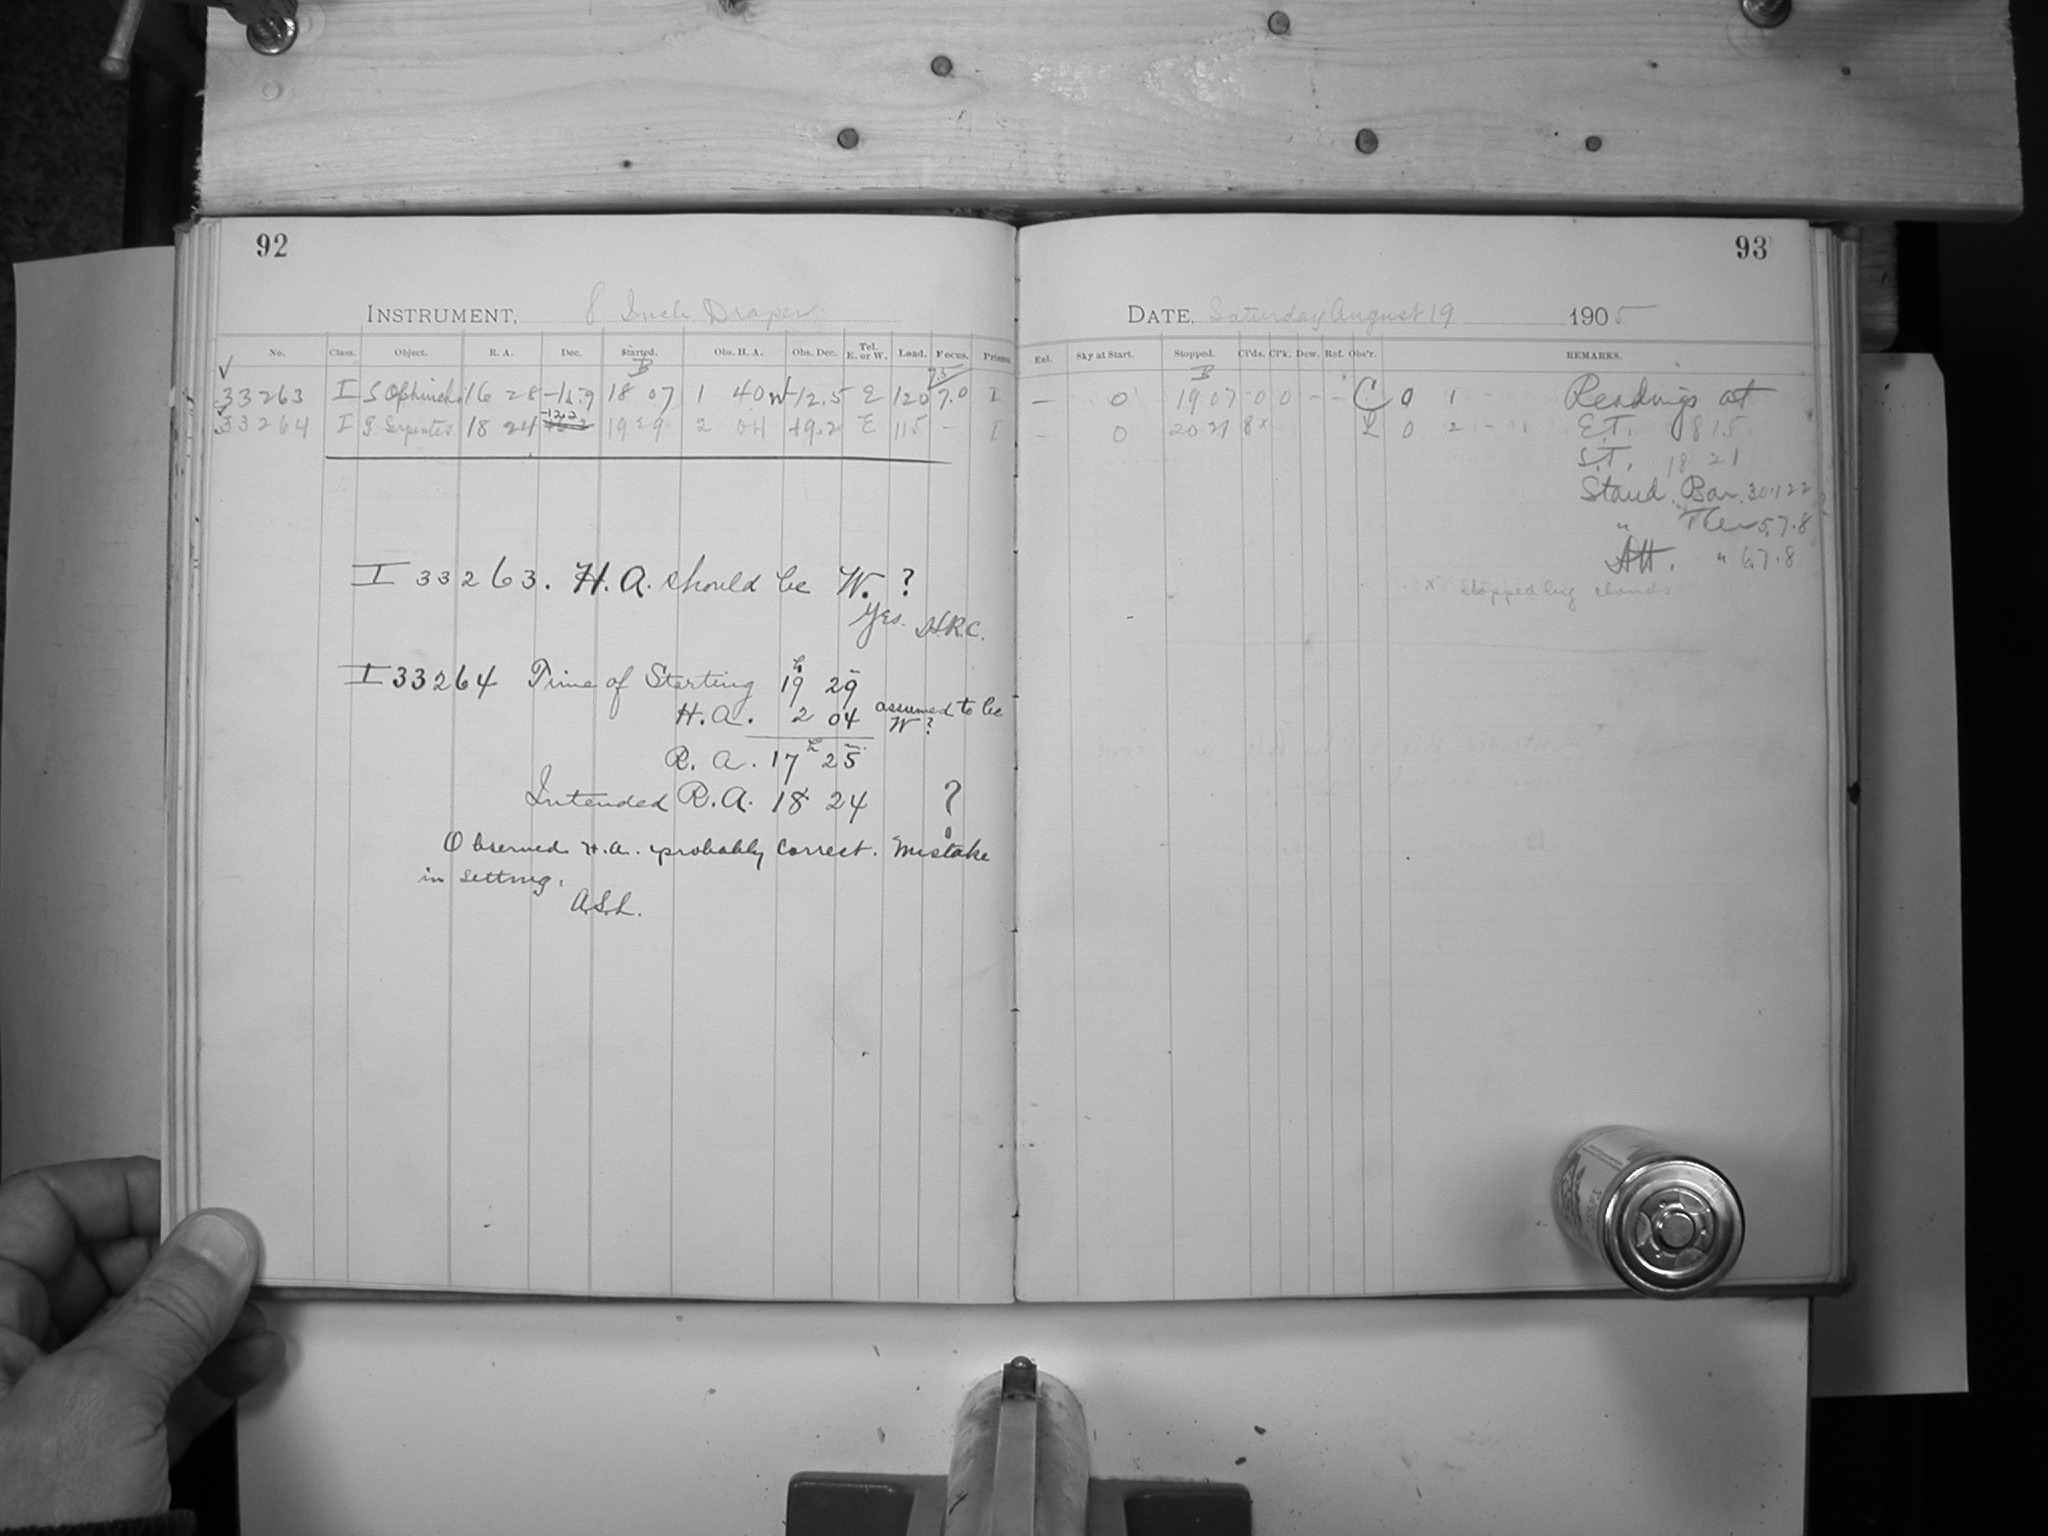 92
INSTRUMENT, 8 Inch Draper
No. Class. Object. R. A. Dec. Started. Obs. H. A. Obs. Dec. Tel. E. or W. Load. Focus. Prisms.
33263 I S Ophiuchi 16 28 18 07 1 40 W -12.5 E 120 7.0 I
33264 I Serpentis 18 24 -12.2 19 29 2 04 +9.2 E 115 - I
I 33263. H.A. should be W. ?
Yes. H.R.C.
I 33264 Time of Starting 19 29
H.A. 2 04 assumed to be W ?
R. A. 17 25
Intended R.A. 18 24 ?
Observed H.A. probably correct. Mistake
in setting.
A.S.L.
93
DATE, Saturday August 19 1905
Exl. Sky at Start. Stopped. Cl'ds. Cl'k. Dew. Ref. Obs'r. REMARKS.
— 0 19 07 0 0 - - C 0 1 Readings at
- 0 20 21 8 x 0 2 E.T. 8 15
S.T. 18 21
Stand. Bar. 30.122
" Ther 57.8
Att. " 67.8
x Stopped by clouds